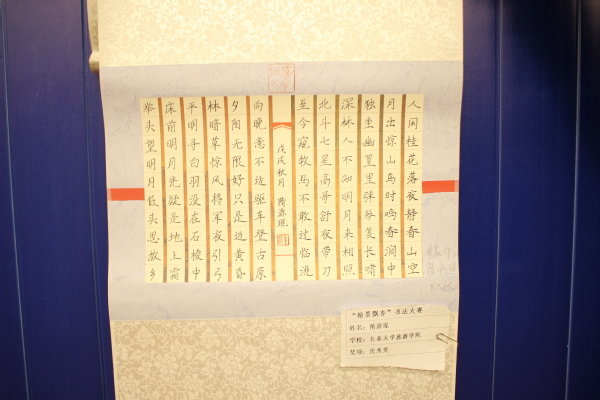 人闲桂花落夜静春山空
月出惊山鸟时鸣春涧中
独坐幽篁里弹琴复长啸
深林人不知明月来相照
北斗七星高哥舒夜带刀
至今窥牧马不敢过临洮
戊戌秋月
向晚意不适驱车登古原
夕阳无限好只是近黄昏
林暗草惊风将军夜引弓
平明寻白羽没在石棱中
床前明月光疑是地上霜
举头望明月低头思故乡
“翰墨飘香”书法大赛
姓名：
学校：长春大学旅游学院
奖项：优秀奖